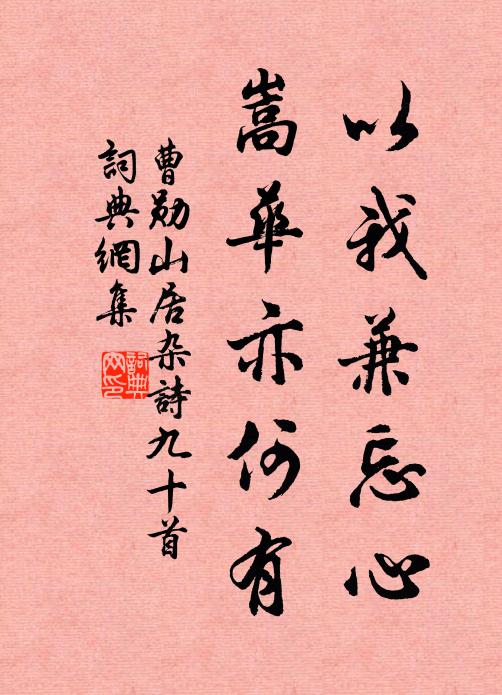 以我兼忘心
嵩華亦何有
曹勛山居杂詩九十首
詞典網集
詞典网印